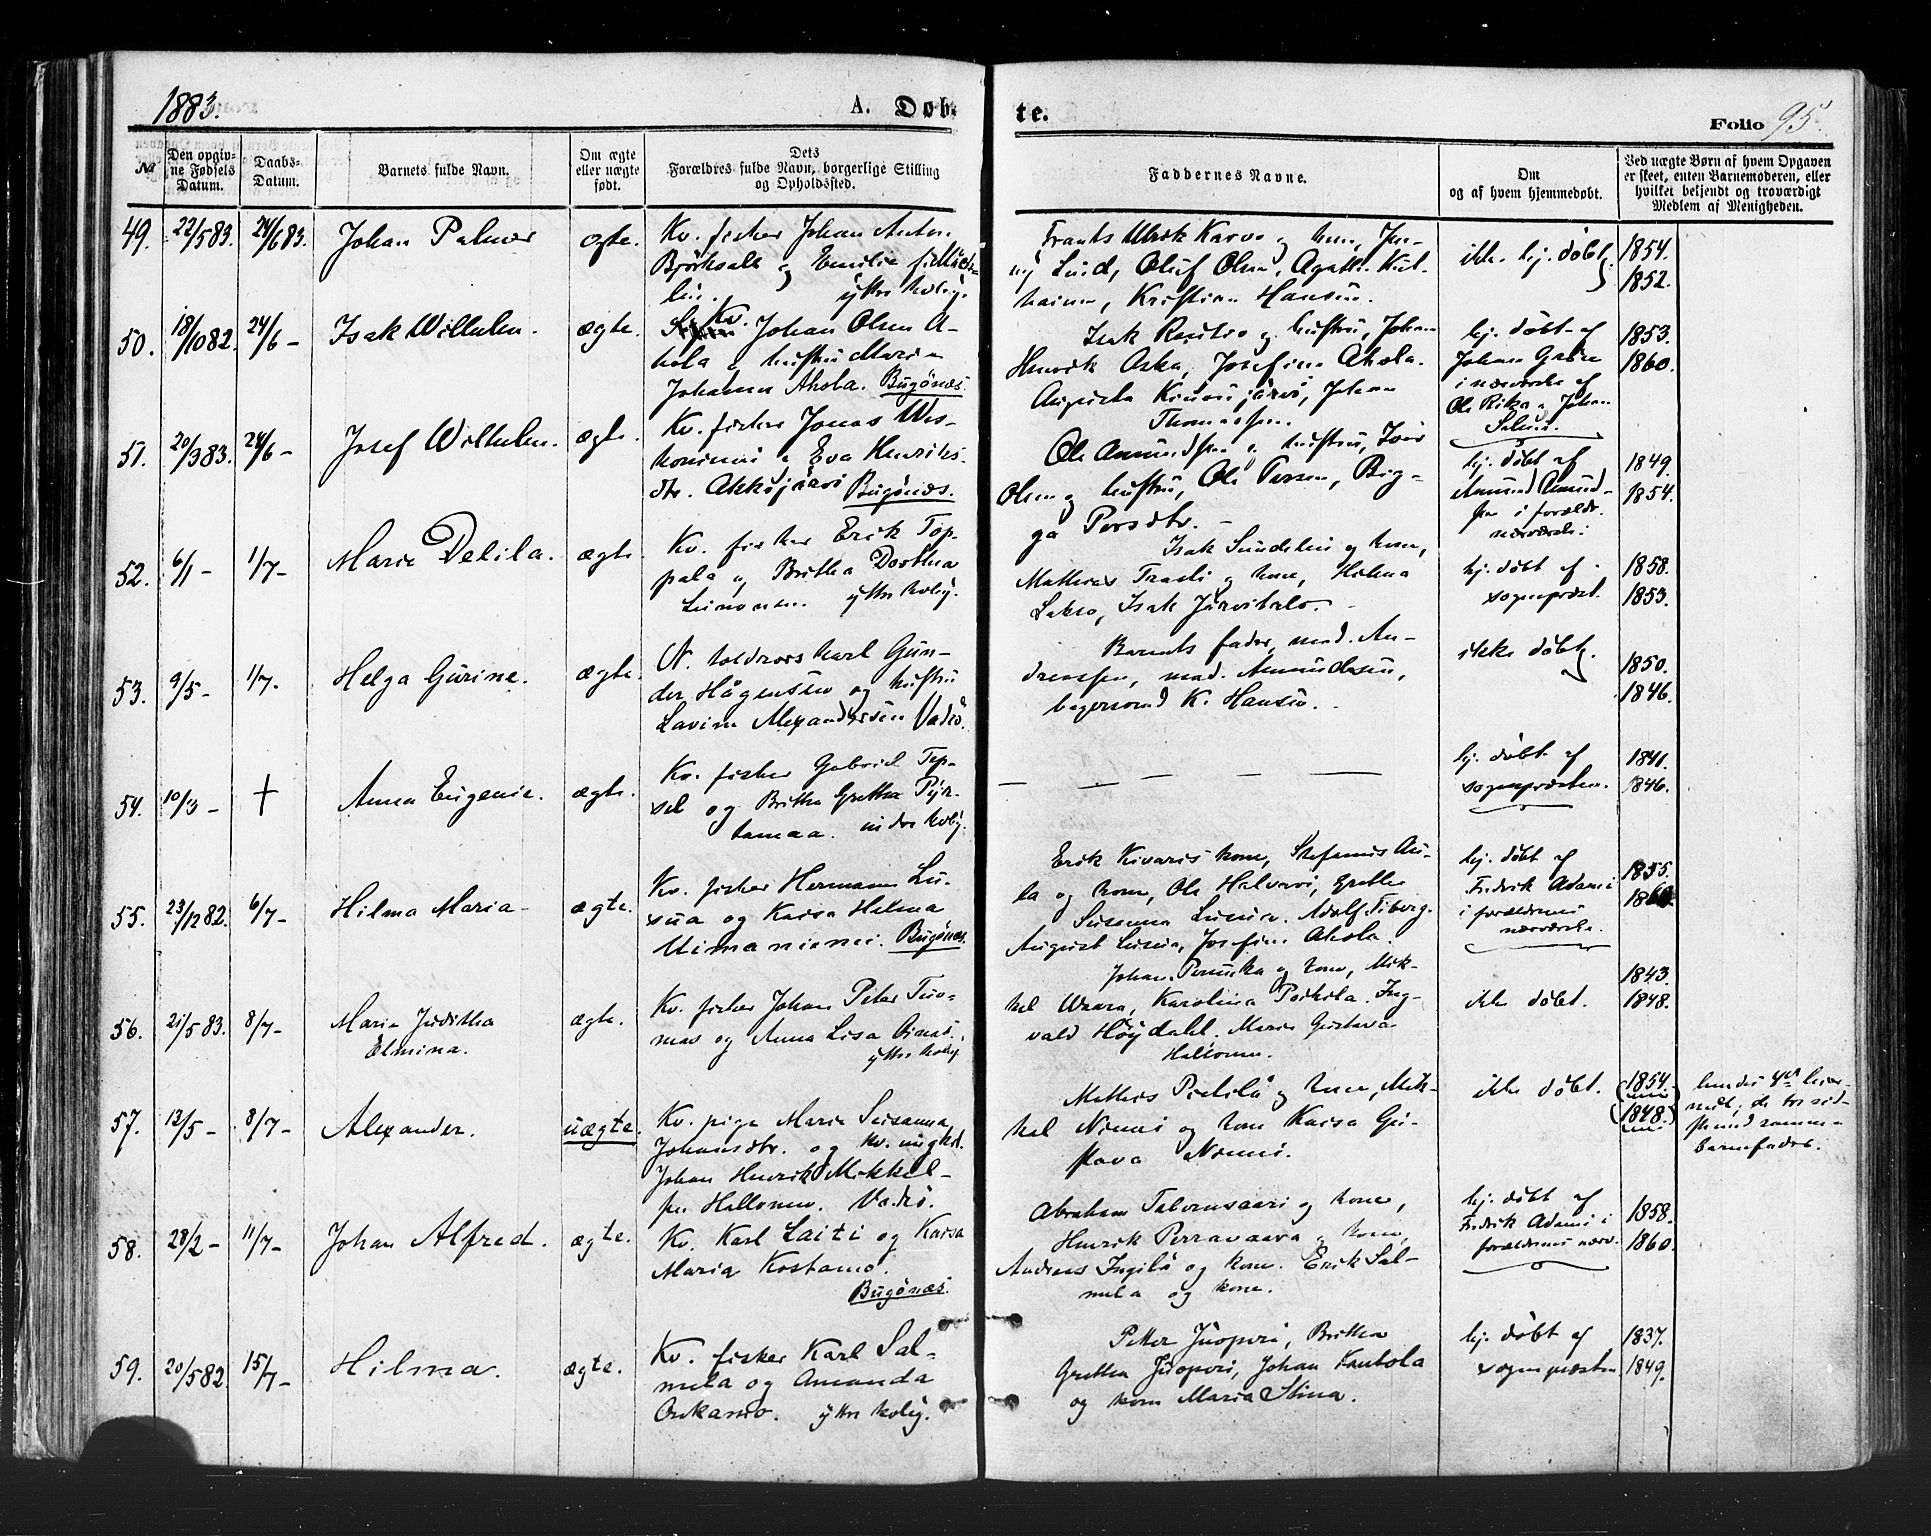 1883.
A. Døb-
te.
Folio 95.
№
Den opgiv-
ne Fødsels
Datum.
Daabs-
Datum.
Barnets fulde Navn.
Om ægte
eller uægte
født.
Dets
Forældres fulde Navn, borgerlige Stilling
og Opholdssted.
Faddernes Navne.
Om
og af hvem hjemmedøbt.
Ved uægte Børn af hvem Opgaven
er skeet, enten Barnemoderen, eller
hvilket bekjendt og troværdigt
Medlem af Menigheden.
49. 22/5 83. 24/6 83. Johan Palmer ægte.
Kv. fisker Johan Anton
og Emilie
ytre kvbÿ.
Frants Ulrik Karvo og kone,
Lund, Oluf Olsen, Agatha
Kristian Hansen.
ikke hj. døbt
1854.
1852.
50. 18/10 82. 24/6 – Isak Wilhelm. ægte.
Kv. Johan Olsen A-
hola og hustru Maria
Johanna Ahola. Bugönæs.
Isak og hustru, Johan
Henrik Aska, Josefine Ahola.
Augusta Kinnujärvi, Johan
Thomassen.
hj. døbt af
Johan
i nærværelse af
Ole Johan
1853.
1860.
51. 20/3 83. 24/6 – Josef Wilhelm. ægte.
Kv. fisker Jonas
og Eva Henriks-
dtr. Akkojärvi Bugönæs.
Ole Amundsen og hustru, Iver
Olsen og hustru, Ole Persen, Big-
ga Persdtr. –
hj. døbt af
Amund Amund-
sen i forældr.
nærværelse.
1849.
1854.
52. 6/1 – 1/7 – Maria Delila. ægte.
Kv. fisker Erik Top-
pala og Britha Dorthea
ytre kvbÿ.
Isak Sundelin og kone,
Mathias og kone, Hilma
Lakso, Isak Järvitalo.
hj. døbt af
sognepræst.
1858.
1853.
53. 9/5 – 1/7. Helga Gurine. ægte.
N. toldroors karl Gun-
der Hågensen og hustru
Lavina Alexandersen Vadsö.
Barnets fader, mad. An-
dreassen, mad. Amundsen,
bagersvend K. Hansen.
ikke døbt.
1850.
1846.
54. 10/3 – + Anna Eugenie. ægte.
Kv. fisker Gabriel Tep-
sel og Britha Gretha Pÿr-
tamaa. indre kvbÿ.
— — — — —
hj. døbt af
sognepræsten.
1841.
1846.
55. 23/12 82. 6/7 – Hilma Maria – ægte.
Kv. fisker Hermann Lu-
sua og Kaisa Helma
Uimaniemi. Bugönæs.
Erik Kivaris kone, Stefanus Au-
la og kone, Ole Halvari, Grethe
Susanna Lusua. Adolf Fiborg.
August Lusua, Josefine Ahola.
hj. døbt af
Fredrik Adami
i forældrenes
nærværelse.
1855.
1860.
56. 21/5 83. 8/7 – Maria Juditha
Elmina. ægte.
Kv. fisker Johan Peter Tuo-
mas og Anna Lisa
ytre kvbÿ.
Johan og kone, Mik-
kel Waara, Karolina Poikela. Ing-
vald Höydahl. Maria Gustava
ikke døbt.
1843.
1848.
57. 12/5 – 8/7 – Alexander. uægte.
Kv. pige Maria Susanna
Johansdtr. og Kv. ungkrl.
Johan Henrik Mikkel-
sen Vadsö.
Mathis Pietilä og kone, Mik-
kel Niemi og kone Kaisa Gu-
stava Niemi.
ikke døbt.
(1854.)
(1848.)
hendes 4de leier-
maal, de tre sid-
ste med samme
barnefader.
58. 28/2 – 11/7 – Johan Alfred. ægte.
Kv. Karl Laiti og Kaisa
Maria Kostamo.
Bugönæs.
Abraham Talvensaari og kone,
Henrik Perravaara og kone,
Andreas Ingilä og kone. Erik Sal-
mela og kone.
hj. døbt af
Fredrik Adami i
forældrenes nærv.
1858.
1860.
59. 20/5 82. 15/7 – Hilma. ægte.
Kv. fisker Karl Sal-
mela og Amanda
Onkamo. ytre kvbÿ.
Petter Juopperi, Britha
Gretha Juopperi, Johan Kantola
og kone Maria Stina.
hj. døbt af
sognepræsten
1837.
1849.